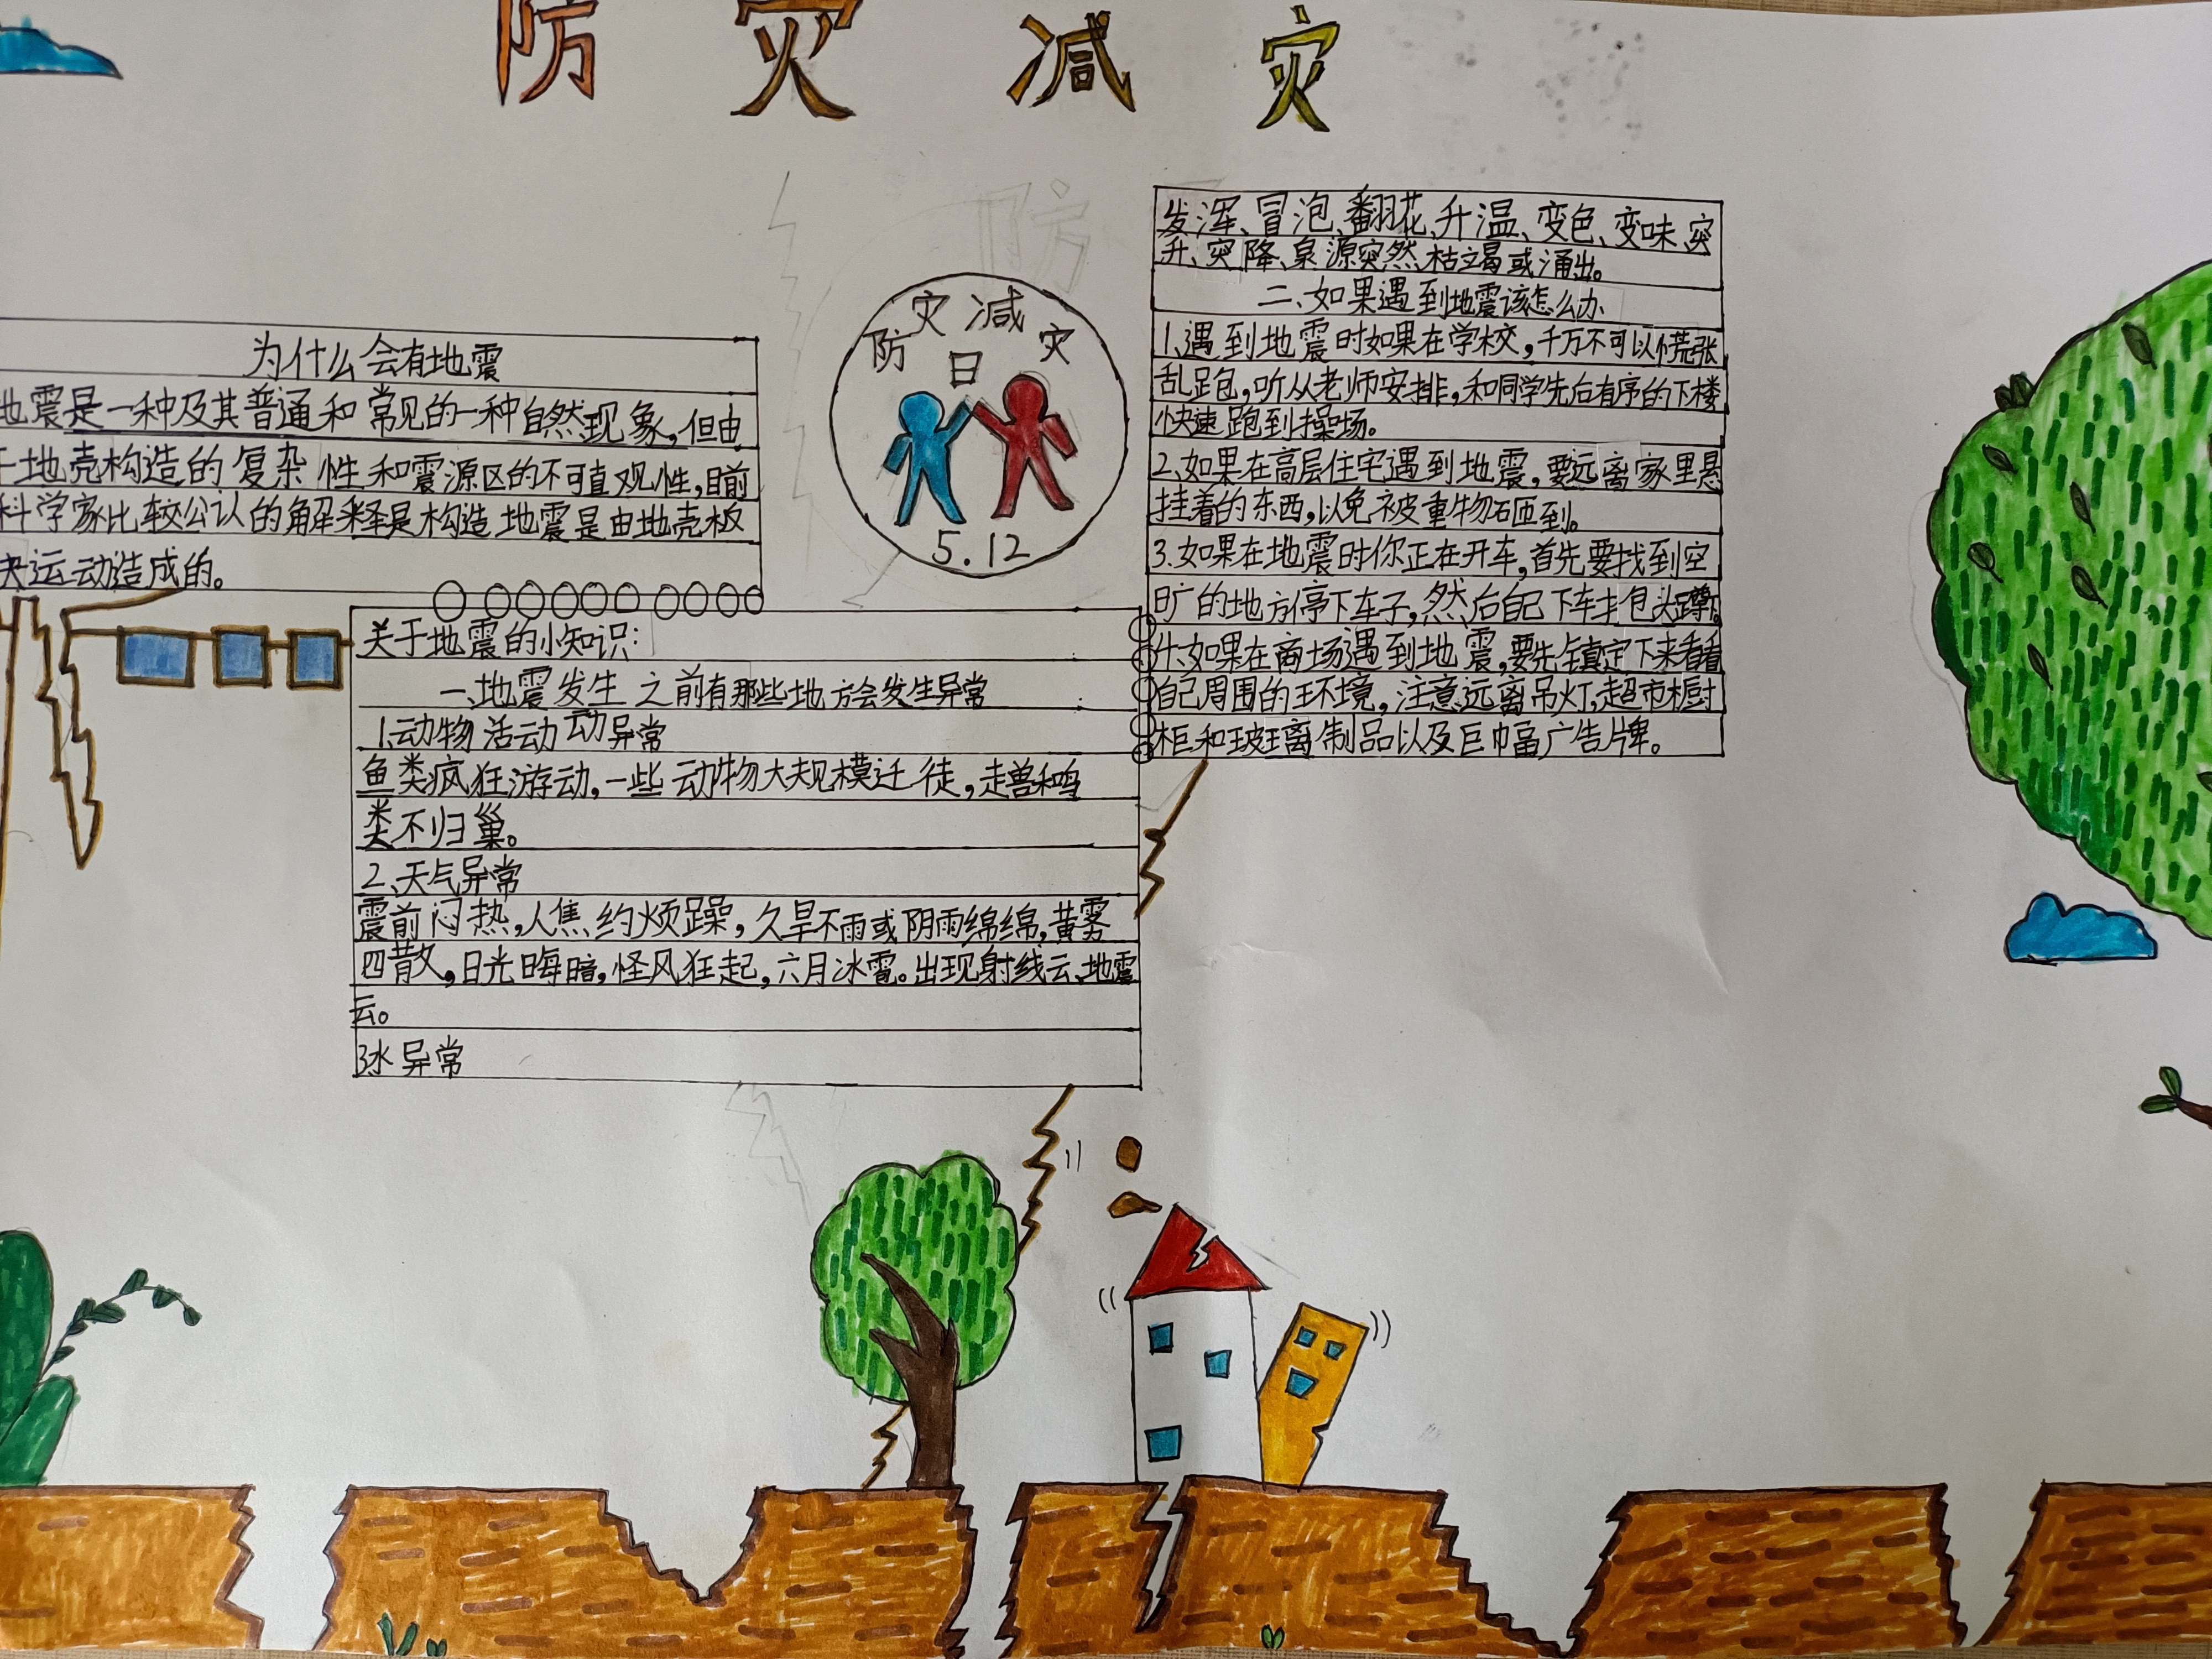 防灾减灾
为什么会有地震
地震是一种及其普通和常见的一种自然现象,但由
于地壳构造的复杂性和震源区的不可直观性,目前
科学家比较公认的解释是构造地震是由地壳板
块运动造成的。
防灾减灾
日
5.12
关于地震的小知识:
一、地震发生之前有那些地方会发生异常
1.动物活动动异常
鱼类疯狂游动,一些动物大规模迁徒,走兽和鸟
类不归巢。
2、天气异常
震前闷热,人焦灼烦躁,久旱不雨或阴雨绵绵,黄雾
四散,日光晦暗,怪风狂起,六月冰雹。出现射线云、地震
云。
3水异常
发浑、冒泡、翻花、升温、变色、变味、突
升、突降、泉源突然枯竭或涌出。
二、如果遇到地震该怎么办
1.遇到地震时如果在学校,千万不可以慌张
乱跑,听从老师安排,和同学先后有序的下楼
快速跑到操场。
2、如果在高层住宅遇到地震,要远离家里悬
挂着的东西,以免被重物砸到。
3.如果在地震时你正在开车,首先要找到空
旷的地方停下车子,然后自己下车抱头蹲下。
4、如果在商场遇到地震,要先镇定下来看看
自己周围的环境,注意远离吊灯,超市橱
柜和玻璃制品以及巨幅广告牌。